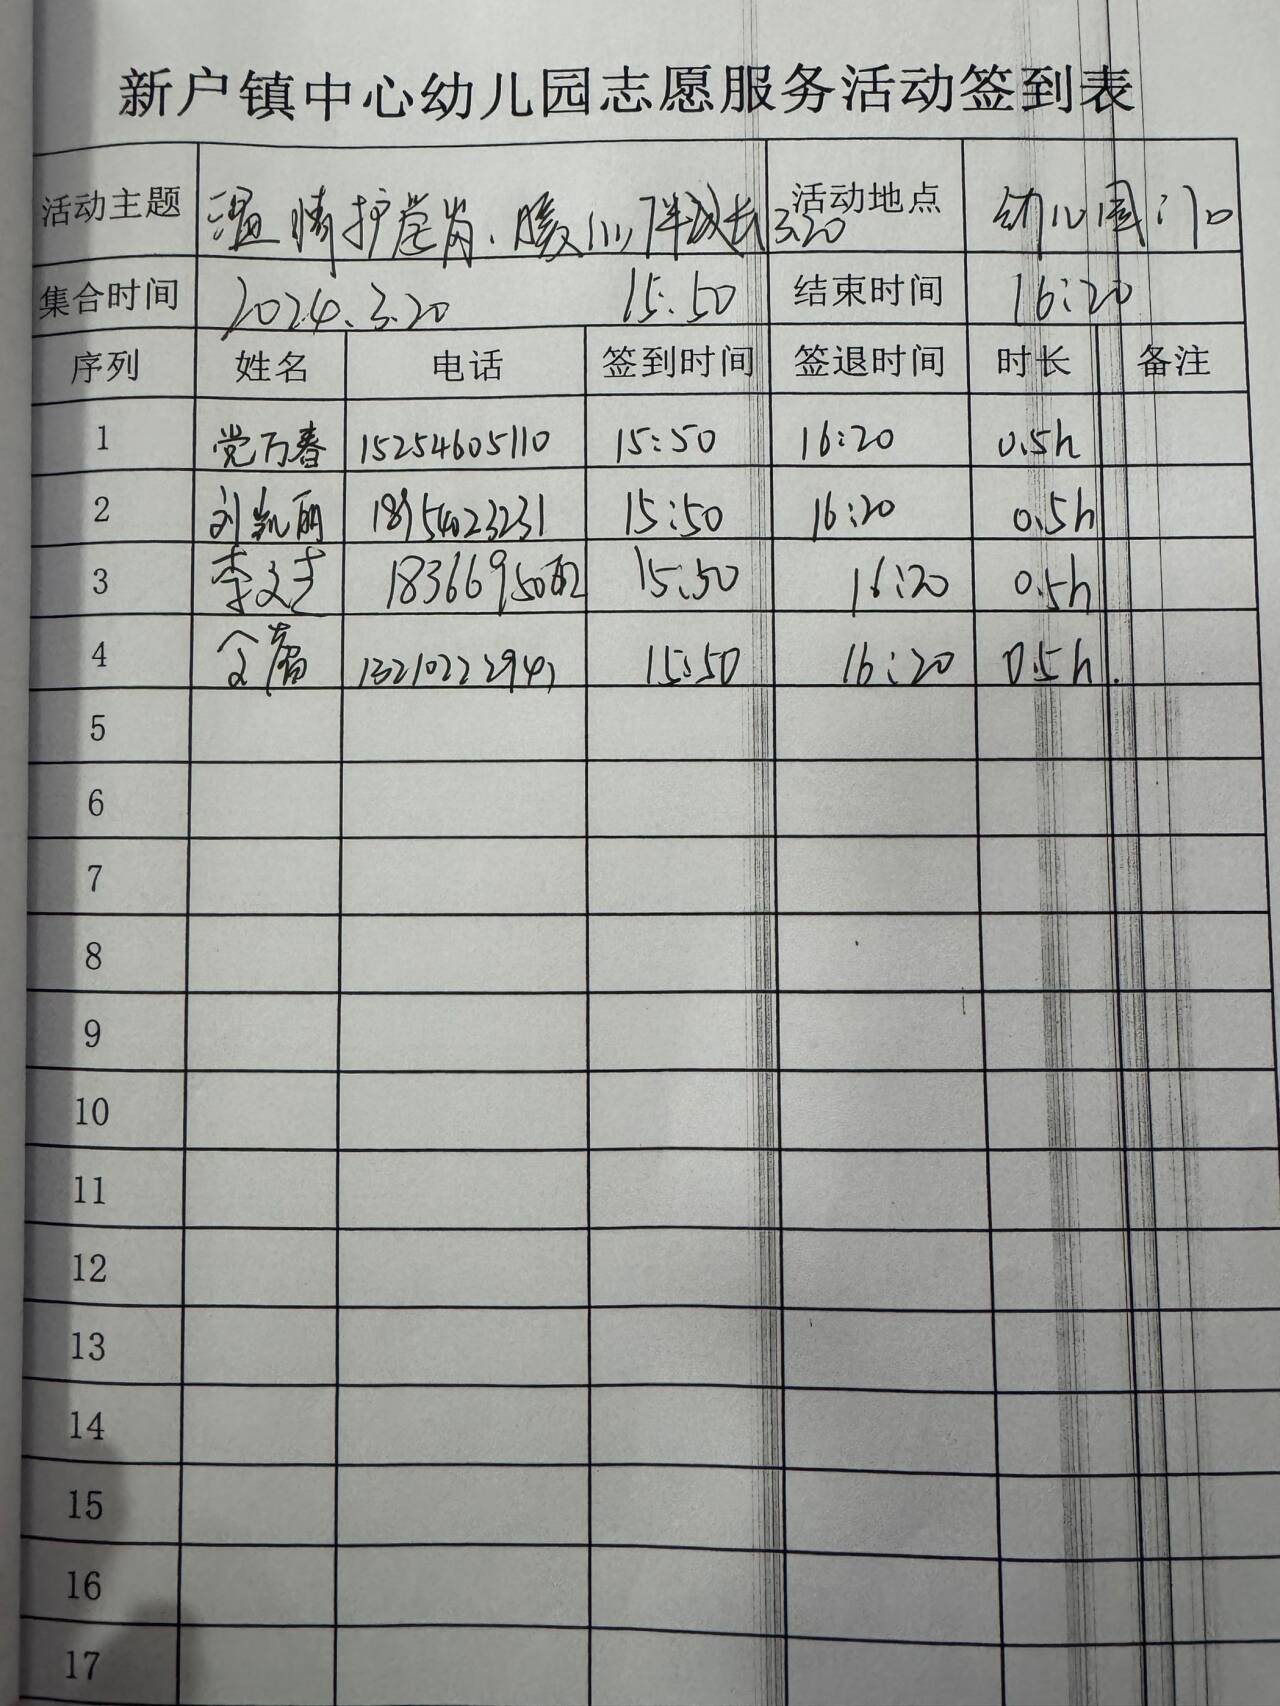 新户镇中心幼儿园志愿服务活动签到表
活动主题 温情护学岗、暖心伴成长3.20 活动地点 幼儿园门口
集合时间 2024.3.20 15:50 结束时间 16:20
序列 姓名 电话 签到时间 签退时间 时长 备注
1 党万春 15254605110 15:50 16:20 0.5h
2 刘凯丽 18954023231 15:50 16:20 0.5h
3 李文 15:50 16:20 0.5h
4 15:50 16:20 0.5h.
5
6
7
8
9
10
11
12
13
14
15
16
17